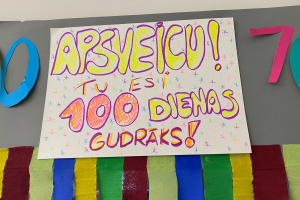 APSVEICU!
TU ESI
100 DIENAS
GUDRĀKS!
0
10